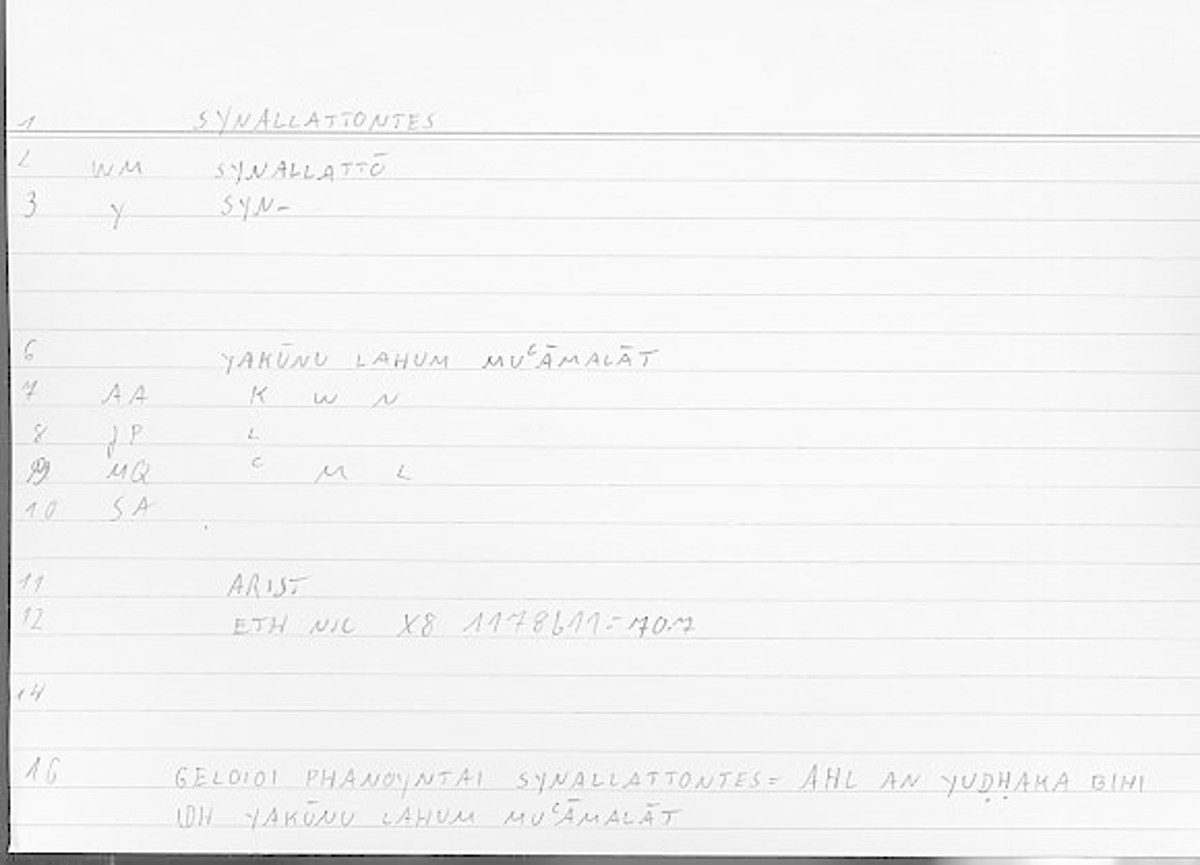 1 SYNALLATTONTES
2 WM SYNALLATTŌ
3 Y SYN-
6 YAKŪNU LAHUM MUʿĀMALĀT
7 AA K W N
8 JP L
9 MQ ʿ M L
10 SA
11 ARIST
12 ETH NIC X8 1178b11=707.7
14
16 GELOIOI PHANOYNTAI SYNALLATTONTES= AHL AN YUḌḤAKA BIHI
IDH YAKŪNU LAHUM MUʿĀMALĀT